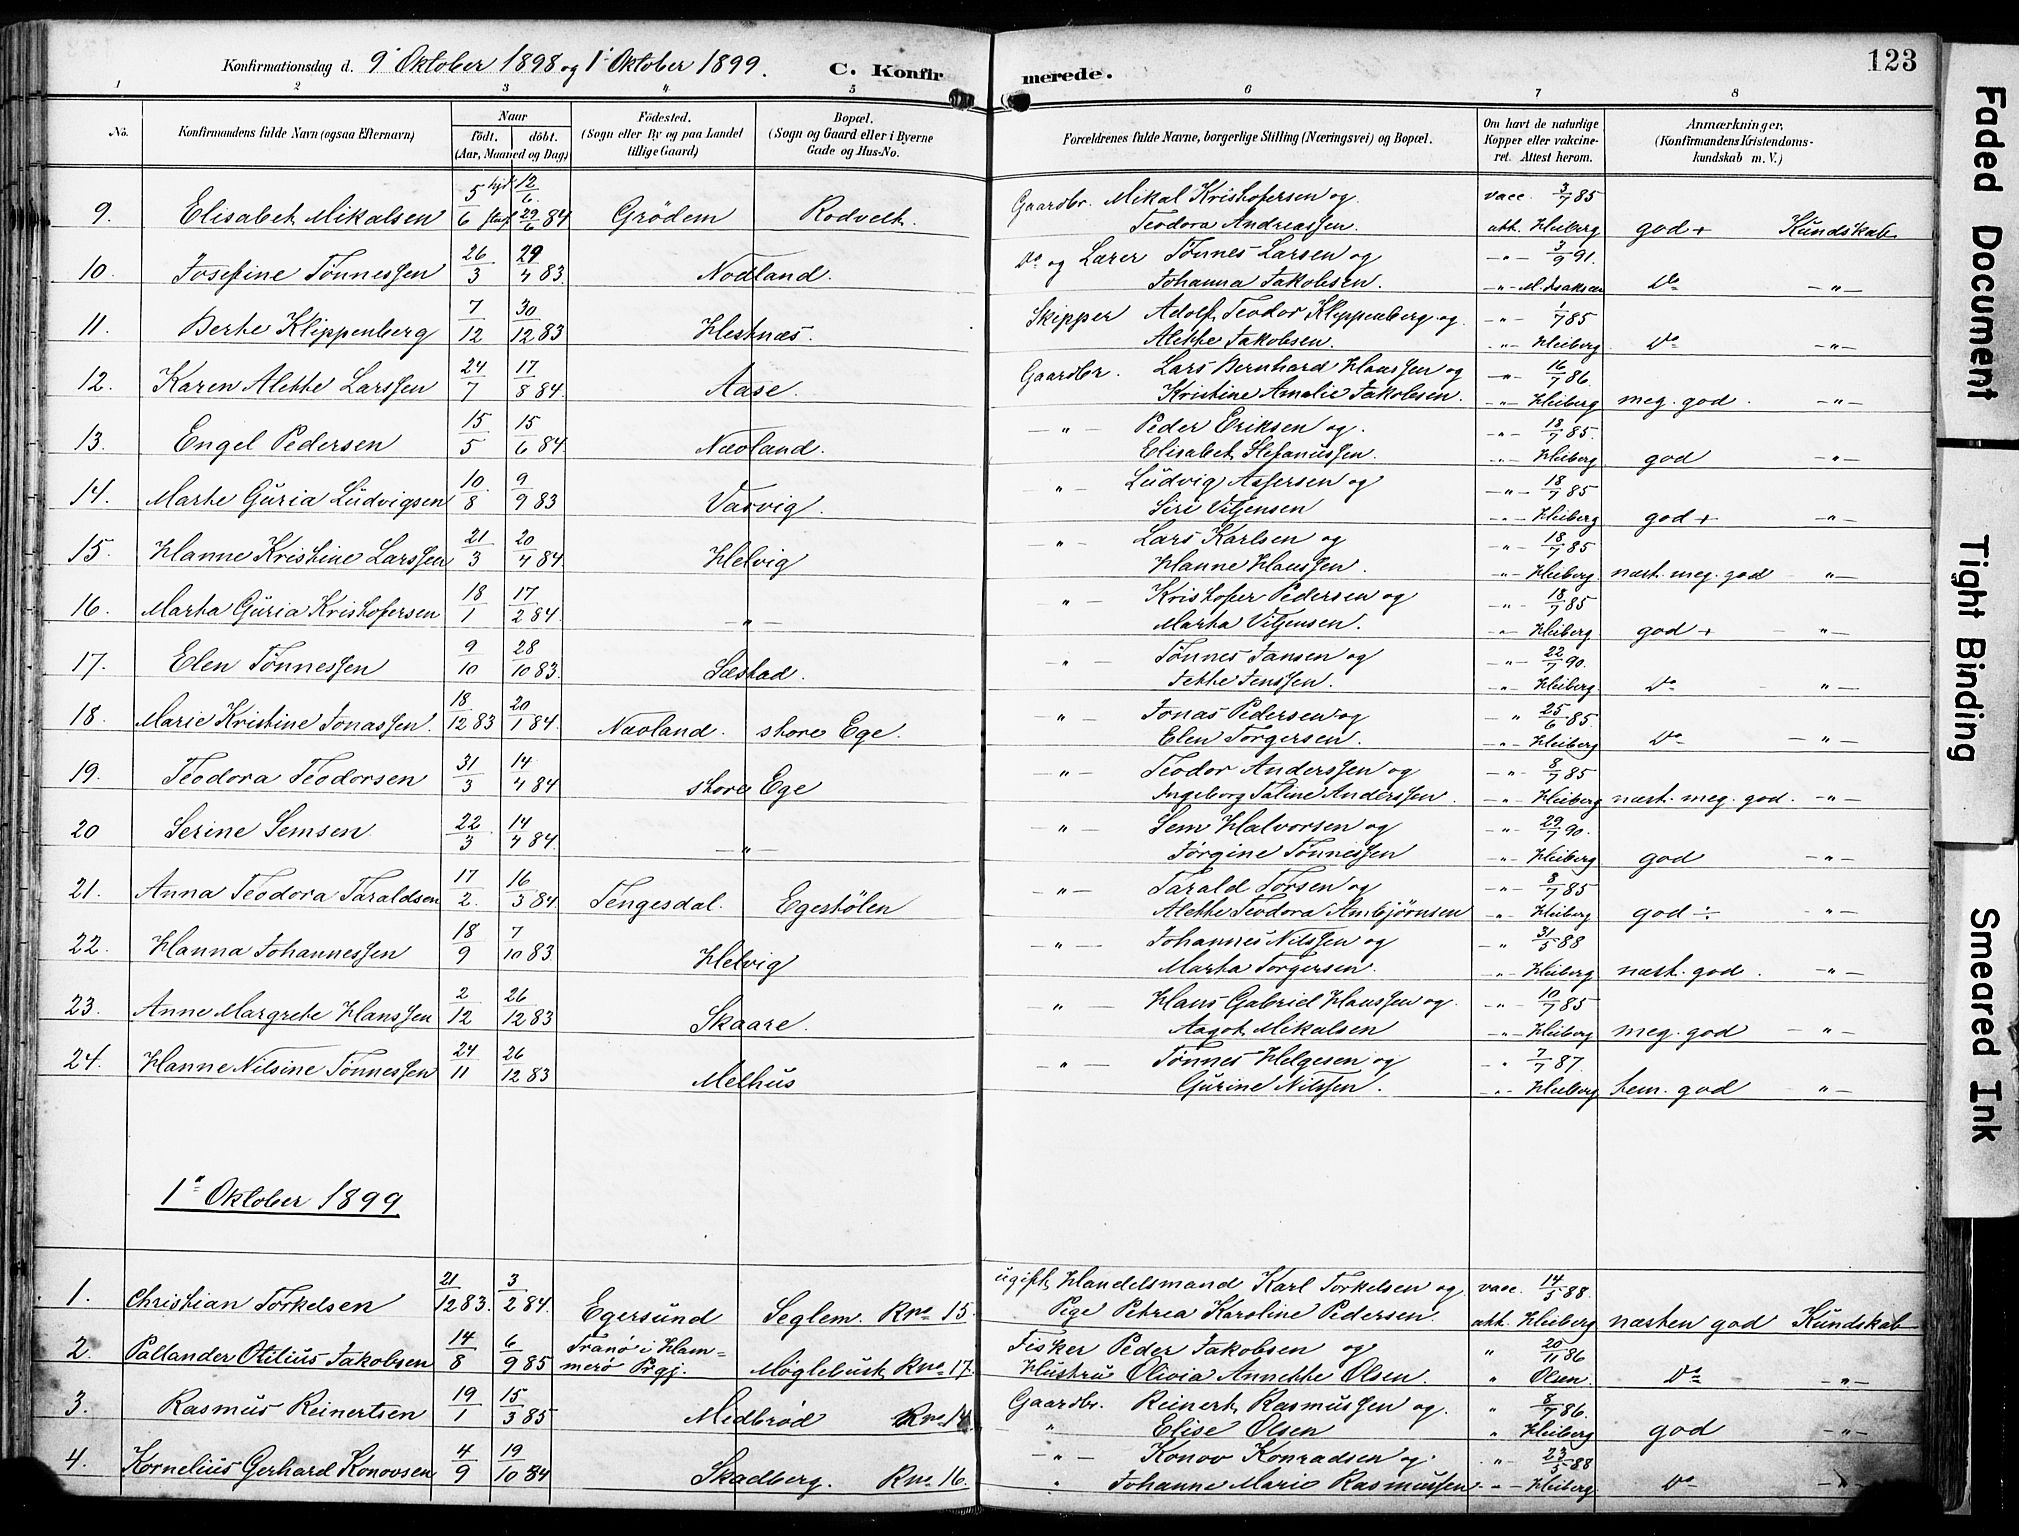 Konfirmationsdag d. 9' Oktober 1898 og 1' Oktober 1899. C. Konfirmerede. 123
1 2 3 4 5 6 7 8
No. Konfirmandens fulde Navn (ogsaa Efternavn) Naar født. døbt. (Aar, Maaned og Dag) Fødested. (Sogn eller By og paa Landet tillige Gaard) Bopæl. (Sogn og Gaard eller i Byerne Gade og Hus-No. Forældrenes fulde Navne, borgerlige Stilling (Næringsvei) og Bopæl. Om havt de naturlige Kopper eller vakcineret. Attest herom. Anmærkninger. (Konfirmandens Kristendomskundskab m. V.)
9. Elisabet Mikalsen 5/6 12/6 29/6 84 Grödem Rodvelt. Gaardbr. Mikal Kristofersen og Teodora Andreassen. vacc. 3/7 85 att. Heiberg god + Kundskab
10. Josefine Tönnessen 26/3 29/4 83. Nodland. Do og Lærer Tönnes Larsen og Johanna Jakobsen. -"- 3/9 91. -"- M. Isaksen Do -"-
11. Berte Klippenberg 7/12 30/12 83 Hestnæs. Skipper Adolf Teodor Klippenberg og Alette Jakobsen. -"- 1/7 85 -"- Heiberg Do -"-
12. Karen Alette Larssen 24/7 17/8 84. Aase. Gaardbr. Lars Bernhard Hanssen og Kristine Amalie Jakobsen. -"- 16/7 86. -"- Heiberg meg. god. -"-
13. Engel Pedersen 15/5 15/6 84. Nævland. -"- Peder Eriksen og Elisabet Stefanussen. -"- 18/7 85. -"- Heiberg god -"-
14. Marte Guria Ludvigsen 10/8 9/9 83 Varvig. -"- Ludvig Assersen og Siri Vitjensen -"- 18/7 85 -"- Heiberg god + -"-
15. Hanne Kristine Larssen 21/3 20/4 84. Helvig -"- Lars Karlsen og Hanne Hanssen. -"- 18/7 85 -"- Heiberg næst. meg. god -"-
16. Marta Guria Kristofersen 18/1 17/2 84. -"- -"- Kristofer Pedersen og Marta Vitjensen. -"- 18/7 85 -"- Heiberg god + -"-
17. Elen Tönnessen 9/10 28/10 83. Sæstad. -"- Tönnes Jansen og Jette Jenssen. -"- 22/7 90. -"- Heiberg. Do -"-
18. Marie Kristine Jonassen. 18/12 83 20/1 84. Nævland. store Ege. -"- Jonas Pedersen og Elen Torgersen. -"- 25/6 85 -"- Heiberg Do -"-
19. Teodora Teodorsen 31/3 14/4 84 store Ege -"- Teodor Anderssen og Ingeborg Taline Anderssen. -"- 8/7 85 -"- Heiberg næst. meg. god. -"-
20 Serine Semsen 22/3 14/4 84. -"- -"- Sem Halvorsen og Jörgine Tönnessen -"- 29/7 90. -"- Heiberg god -"-
21. Anna Teodora Taraldsen 17/2. 16/3 84 Tengesdal. Egestölen -"- Tarald Torsen og Alette Teodora Ambjørnsen -"- 8/7 85 -"- Heiberg god ÷ -"-
22. Hanna Johannessen 18/9 7/10 83 Helvig -"- Johannes Nilssen og Marta Torgersen. -"- 31/5 88 -"- Heiberg næst. god. -"-
23. Anne Margrete Hanssen 2/12 26/12 83 Skaare. -"- Hans Gabriel Hanssen og Aagot Mikalsen -"- 10/7 85 -"- Heiberg meg. god -"-
24. Hanne Nilsine Tönnessen 24/11 26/12 83 Melhus -"- Tönnes Helgesen og Gurine Nilssen. -"- 7/7 87. -"- Heiberg tem. god -"-
1ste Oktober 1899.
1. Christian Torkelsen 21/12 83. 3/2 84. Egersund Seglem. Rno 15. ugift Handelsmand Karl Torkelsen og Pige Petrea Karoline Pedersen. vacc. 14/5 88. att. Heiberg næsten god Kundskab
2. Pallander Otilius Jakobsen 14/8 6/9 85 Tranö i Hammerö Prgj. Møglebust Rno 17. Fisker Peder Jakobsen og Hustru Olivia Annette Olsen. " 20/11 86 " Olsen. Do -"-
3. Rasmus Reinertsen 19/1 15/3 85 Midbrød Rno 18. Gaardbr. Reinert Rasmussen og " Elise Olsen " 8/7 86. " Heiberg god -"-
4. Kornelius Gerhard Konovsen 4/9 19/10 84 Skadberg. Rno 16. -"- Konov Konradsen og " Johanne Marie Rasmussen -"- 23/5 88 -"- Heiberg. Do -"-
Faded Document
Tight Binding
Smeared Ink